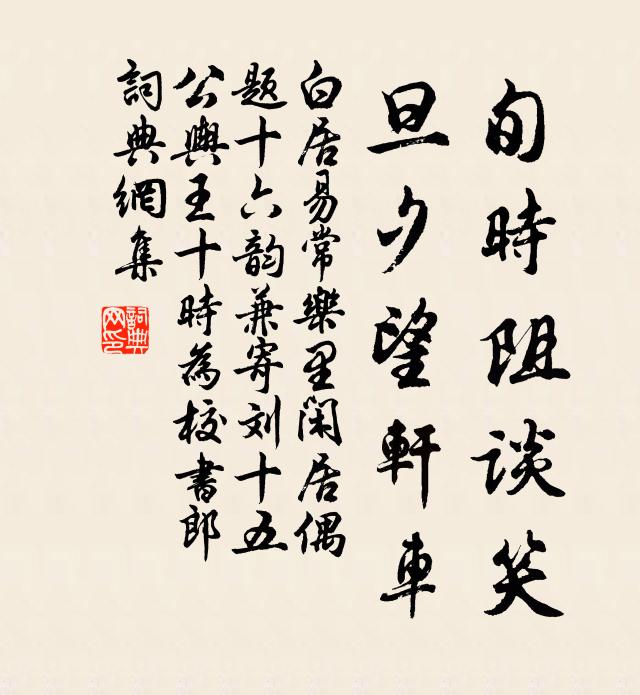 旬時阻谈笑
旦夕望軒車
白居易常樂里閑居偶
题十六韵兼寄刘十五
公輿王十時為校書郎
詞典網集
詞典网印